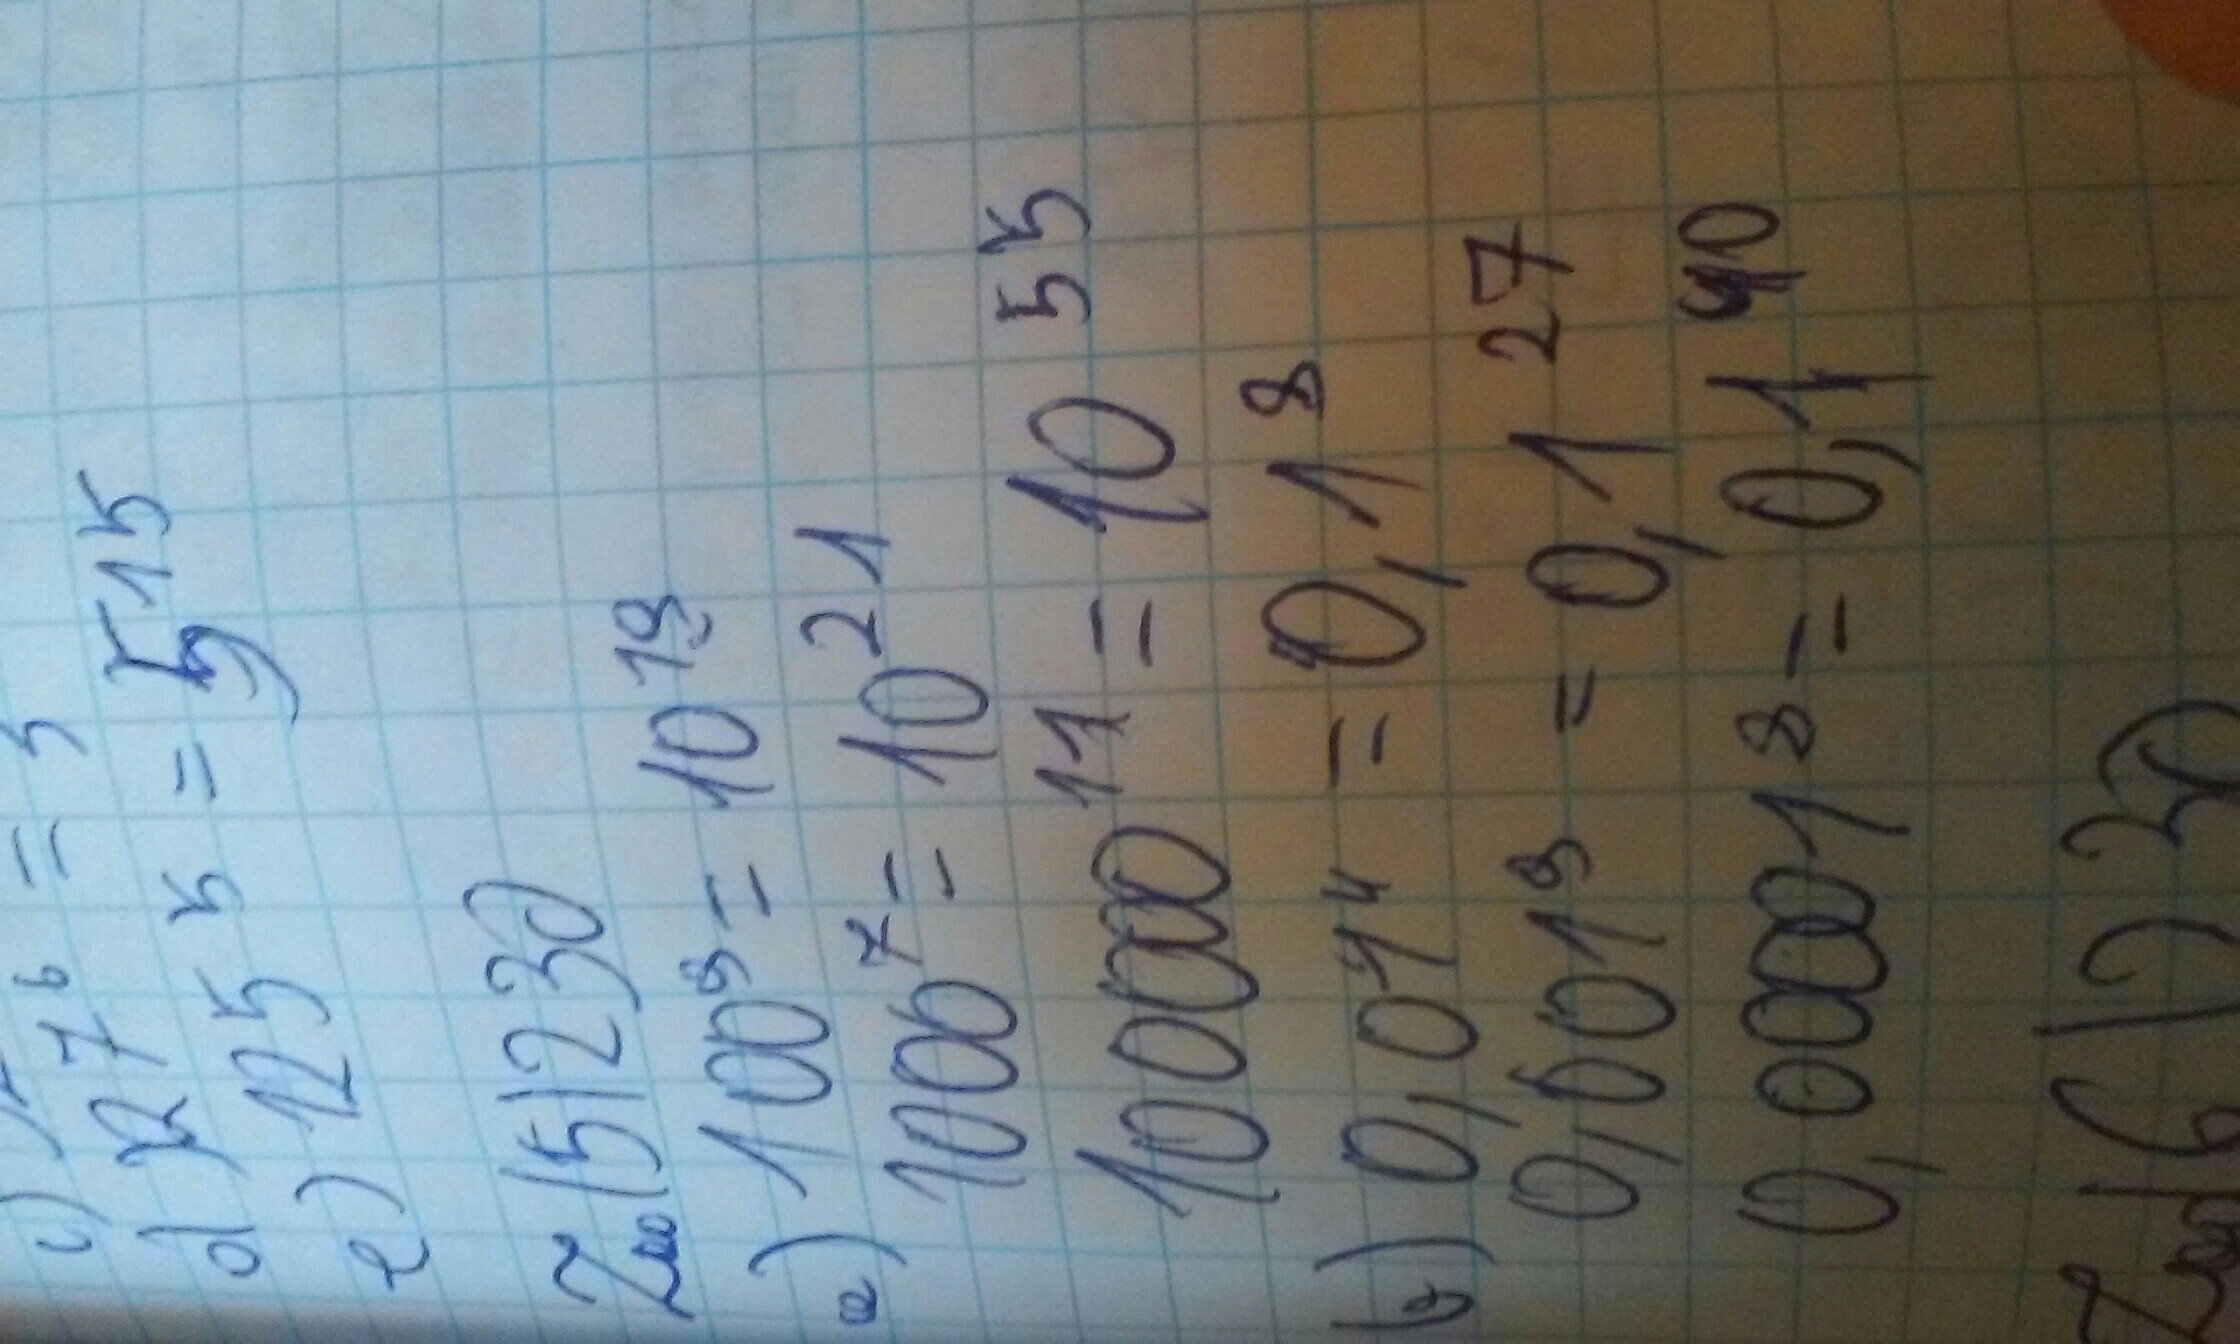 d) 27⁶ = 3
e) 125⁵ = 5¹⁵
Zad 5|230
a) 100⁹ = 10¹⁸
1000⁷ = 10²¹
100000¹¹ = 10⁵⁵
b) 0,01⁴ = 0,1⁸
0,001⁹ = 0,1²⁷
0,00001⁸ = 0,1⁴⁰
Zad 6|230